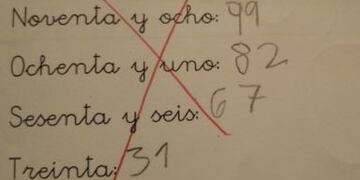 Noventa y ocho: 99
Ochenta y uno: 82
Sesenta y seis: 67
Treinta: 31